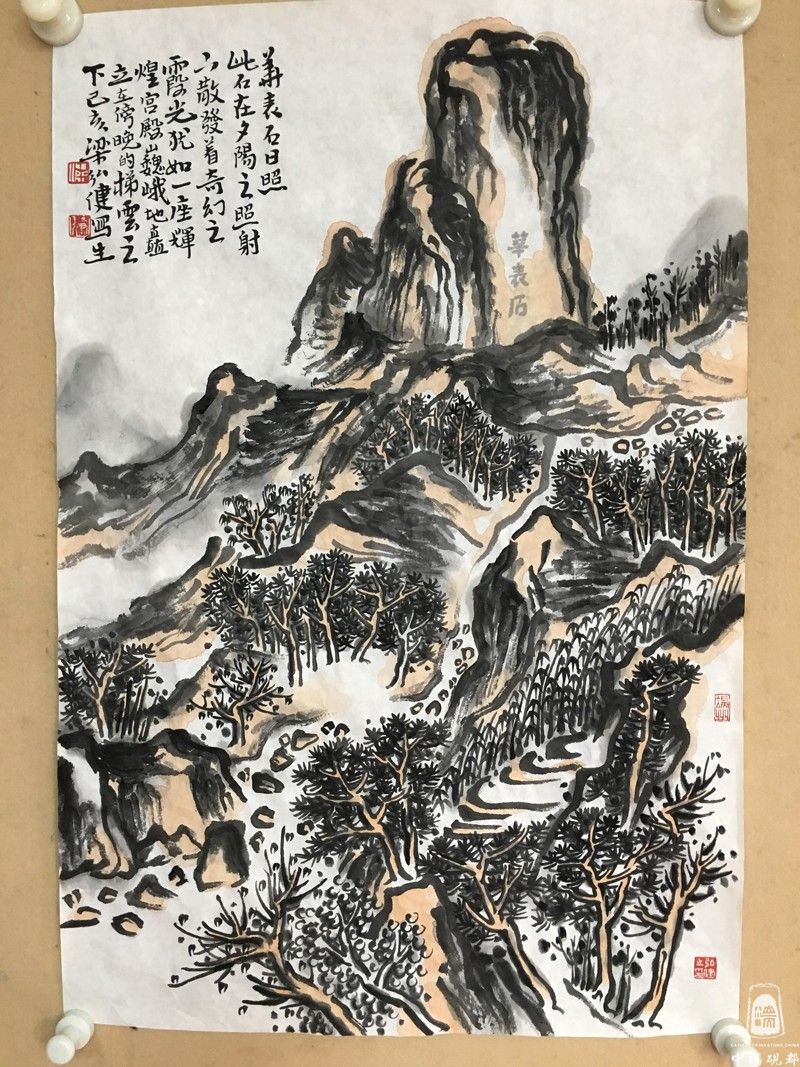 華表石日照
此石在夕陽之照射
下散發着奇幻之
霞光犹如一座輝
煌宫殿巍峨地矗
立在傍晚的梯雲之
下己亥梁弘健寫生
華表石
中國硯都